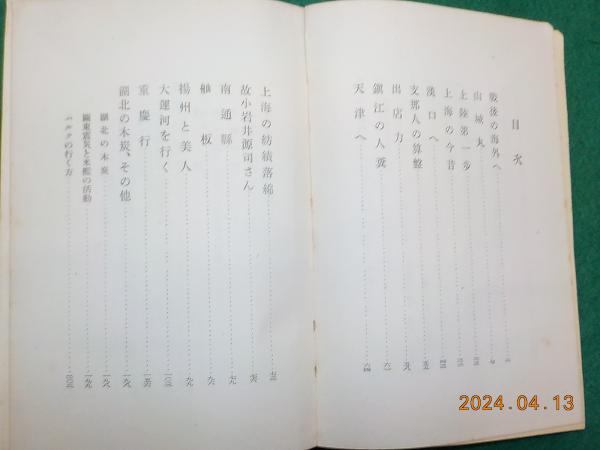 目次
戰後の海外へ
山城丸
上陸第一步
上海の今昔
漢口へ
支那人の算盤
出店方
鎭江の人糞
天津へ
上海の紡績落綿
故小岩井源司さん
南通縣
舢板
揚州と美人
大運河を行く
重慶行
湖北の木炭、その他
湖北の木炭
關東震災と米艦の活動
パルクの行く方
2024.04.13